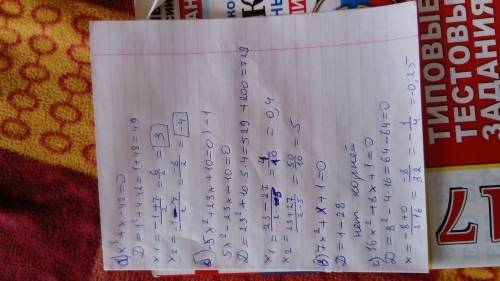 а) x² + x - 12 = 0
D = 1² + 4·12 = 1 + 48 = 49
x1 = (-1+7)/2 = 6/2 = 3
x2 = (-1-7)/2 = -8/2 = -4
б) -5x² + 23x + 10 = 0 | ·-1
5x² - 23x - 10 = 0
D = 23² + 10·5·4 = 529 + 200 = 729
x1 = (23-27)/(2·5) = 4/10 = 0,4
x2 = (23+27)/(2·5) = 50/10 = 5
в) 7x² + x + 1 = 0
D = 1 - 28
нет корней
г) 16x² + 8x + 1 = 0
D = 8² - 4·16 = 64 - 64 = 0
x = (-8+0)/(2·16) = -8/32 = -1/4 = -0,25
ТИПОВЫЕ
ТЕСТОВЫ
ЗАДАНИЯ
17